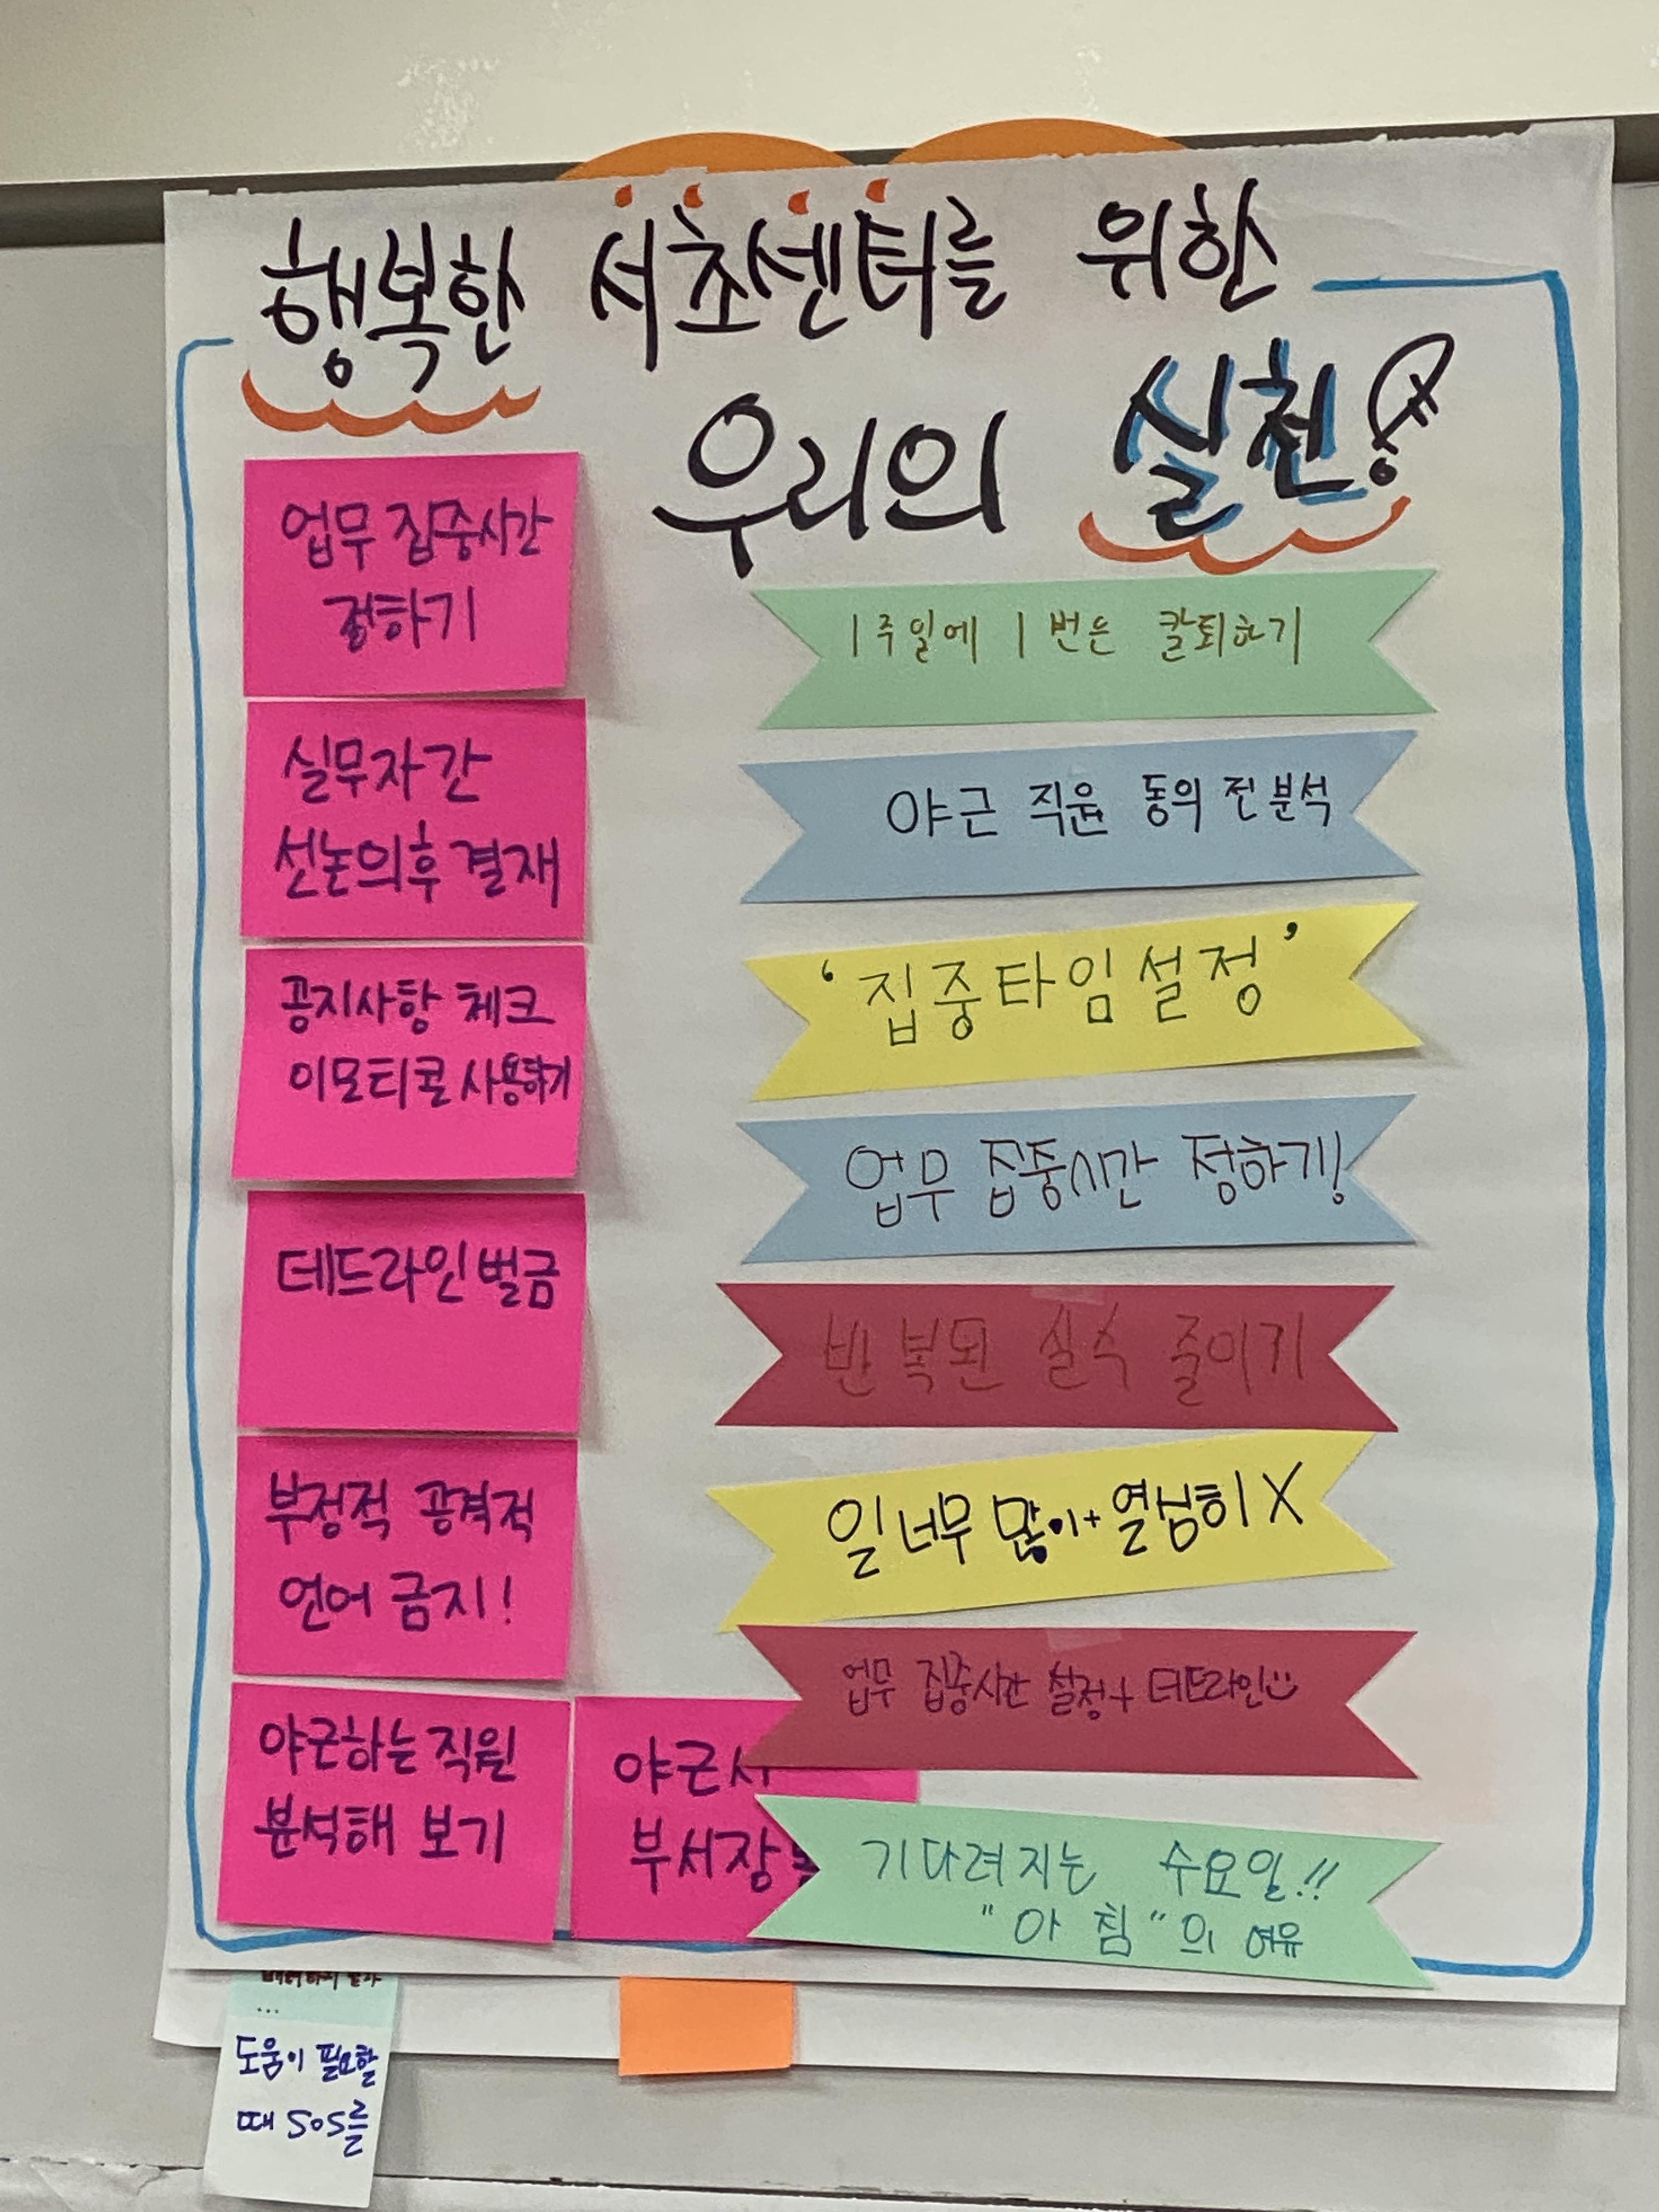 행복한 서초센터를 위한
우리의 실천!
업무 집중시간
정하기
실무자 간
선논의후 결재
공지사항 체크
이모티콘 사용하기
데드라인 벌금
부정적 공격적
언어 금지!
야근하는 직원
분석해 보기
야근시
부서장
1주일에 1번은 칼퇴하기
야근 직원 동의 전 분석
'집중타임설정'
업무 집중시간 정하기!
반복된 실수 줄이기
일 너무 많이+열심히 X
업무 집중시간 설정+ 데드라인
기다려지는 수요일!!
"아침"의 여유
...
도움이 필요할
때 SOS를